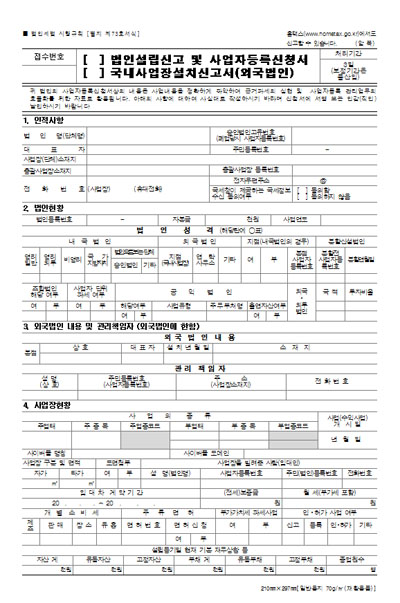 ■ 법인세법 시행규칙 [별지 제73호서식]
홈택스(www.hometax.go.kr)에서도
신고할 수 있습니다.
(앞 쪽)
접수번호
[ ] 법인설립신고 및 사업자등록신청서
[ ] 국내사업장설치신고서(외국법인)
처리기간
3일
(보정기간은
불산입)
귀 법인의 사업자등록신청서상의 내용은 사업내용을 정확하게 파악하여 근거과세의 실현 및 사업자등록 관리업무의
효율화를 위한 자료로 활용됩니다. 아래의 사항에 대하여 사실대로 작성하시기 바라며 신청서에 서명 또는 인감(직인)
날인하시기 바랍니다
1. 인적사항
법 인 명(단체명)
승인법인고유번호
(폐업당시 사업자등록번호)
대 표 자
주민등록번호
-
사업장(단체)소재지
총괄사업장소재지
총괄사업장 등록번호
전자우편주소
@
전 화 번 호
(사업장)
(휴대전화)
국세청이 제공하는 국세정보
수신 동의여부
[ ] 동의함
[ ] 동의하지 않음
2. 법인현황
법인등록번호
-
자본금
천원
사업연도
법 인 성 격 (해당란에 ○표)
내 국 법 인
외 국 법 인
지점(내국법인의 경우)
분할신설법인
영리
일반
영리
외투
비영리
국 가
지방자치
승인법인
기타
지점
(국내사업장)
연 락
사무소
기타
여
부
본점
사업자
등록번호
분할전
사업자등
록번호
분할연월일
조합법인
해당 여부
사업자 단위
과세 여부
공 익 법 인
외국
·
외투
법인
국 적
투자비율
여
부
여
부
해당여부
사업유형
주무부처명
출연자산여부
여
부
여
부
3. 외국법인 내용 및 관리책임자 (외국법인에 한함)
외 국 법 인 내 용
본점
상 호
대 표 자
설 치 년 월 일
소 재 지
관 리 책 임 자
성 명
(상 호)
주민등록번호
(사업자등록번호)
주 소
(사업장소재지)
전 화 번 호
4. 사업장현황
사 업 의 종 류
사업(수익사업)
개 시 일
주업태
주 종 목
주업종코드
부업태
부 종 목
부업종코드
년 월 일
사이버몰 명칭
사이버몰 도메인
사업장 구분 및 면적
도면첨부
사업장을 빌려준 사람(임대인)
자가
타가
여
부
성 명(법인명)
사업자등록번호
주민(법인)등록번호
전화번호
㎡
㎡
임 대 차 계 약 기 간
(전세)보증금
월 세(부가세 포함)
20 . . ~ 20 . .
원
원
개 별 소 비 세
주 류 면 허
부가가치세 과세사업
인·허가 사업 여부
제 조
판 매
장 소
유 흥
면 허 번 호
면 허 신 청
여
부
신고
등록
인·허가
기타
여
부
설립등기일 현재 기본 재무상황 등
자산 계
유동자산
고정자산
부채 계
유동부채
고정부채
종업원수
천원
천원
천원
천원
천원
천원
명
210㎜×297㎜[일반용지 70g/㎡ (재활용품)]